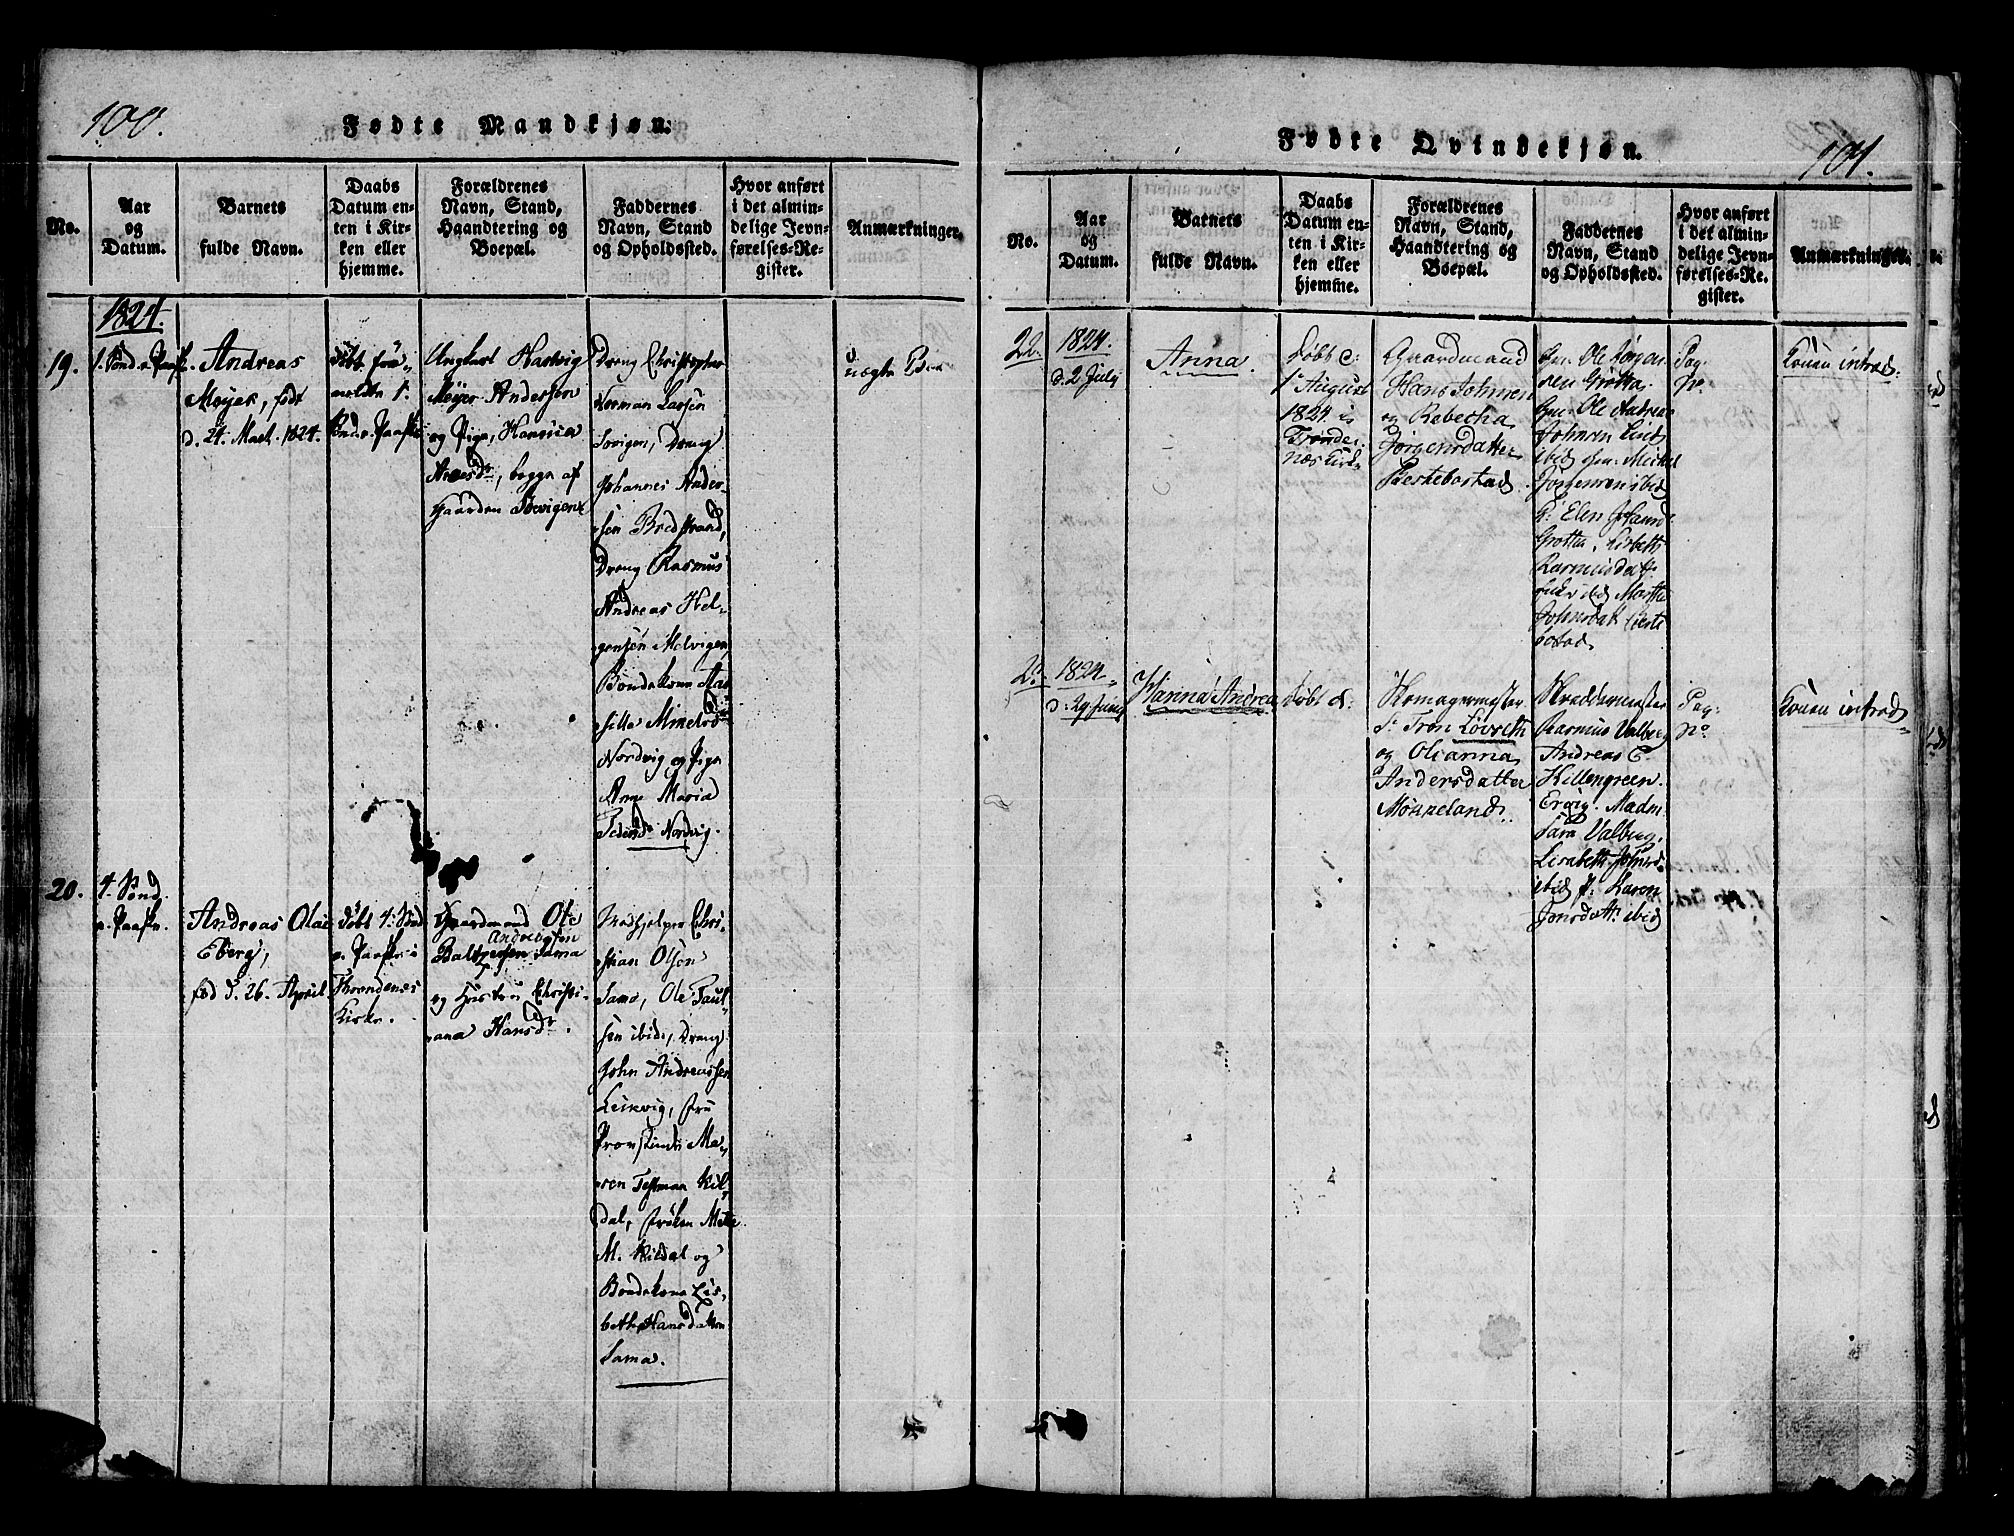 100.
Fødte Mandkjøn.
No.
Aar
og
Datum.
Barnets
fulde Navn.
Daabs
Datum en-
ten i Kir-
ken eller
hjemme.
Forældrenes
Navn, Stand,
Haandtering og
Boepæl.
Faddernes
Navn, Stand
og Opholdssted.
Hvor anført
i det almin-
delige Jevn-
førelses-Re-
gister.
Anmærkninger.
1824.
19.
1. Sønd. e. Paask.
Andreas
Meyer, født
d. 24. Mart. 1824.
døbt
1.
Ungkarl Hartvig
Meyer Andersen
og Pige, Hansina
begge af
Gaarden
Dreng Christopher
Norman Larsen
Dreng
Johannes Ander-
sen Bredstrand,
Dreng Rasmus
Andreas Hel-
gensen Melvigen,
Bondekone
Mikels
Nordvig og Pige
Anne Maria
Peders Nordvig.
uægte
20.
4. Sønd.
e. Paaske.
Andreas Olai
Eberg,
fød d. 26. April
døbt 4. Sønd
e. Paaske i
Throndenes
Kirke.
Gaardmand Ole
Andreas
Baltzersen Sama
og Hustru Christi-
ana Hansd.
Madhjelper Chri-
stian Olsen
Sama, Ole Paul-
sen ibid., Dreng
John Andreassen
Leikvig, Fru
Provstinde Ma-
ren Kil-
dal, Frøken Mette
M. Kildal og
Bondekone Lis-
beth Hansdatter
Sama.
101.
Fødte Qvindekjøn.
No.
Aar
og
Datum.
Barnets
fulde Navn.
Daabs
Datum en-
ten i Kir-
ken eller
hjemme.
Forældrenes
Navn, Stand,
Haandtering og
Boepæl.
Faddernes
Navn, Stand
og Opholdssted.
Hvor anført
i det almin-
delige Jevn-
førelses-Re-
gister.
Anmærkninger.
22.
1824.
d. 2 July
Anna.
Døbt d:
1 August
1824 i
Tronde-
næs Kirke
Gaardmand
Hans Johnsen
og Rebecha
Jørgensdatter
Berkebostad
Ole Jørgen-
sen Grøtta.
Ole Andreas
Johnsen
ibid Mickel
Jørgensen ibid
P: Elen
Grøtta, Lisbeth
Rasmusdatt:
ibid Marthe
Johnsdatt
bostad
Pag:
No
Konen introd:
1824
d: 29 Juny
Hanna Andrea
Døbt d:
Komagermester
Sr Tron Løvseth
og Olianna
Andersdatter
Mökkeland
Skreddermester
Rasmus Valberg
Andreas C.
Killengreen
Madm
Sara Valberg,
Lisabeth
ibid P: Karen
Jonsdatt: ibid
Pag:
No
Konen introd